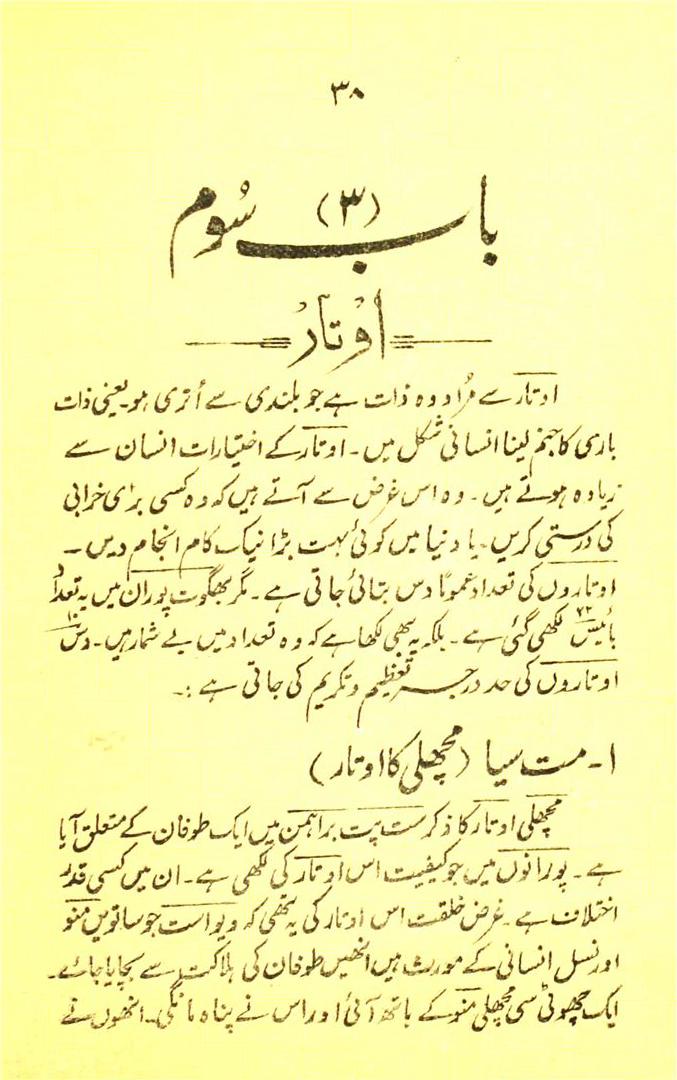 ۳۸
باب (۳) سُوم
اوتار
اوتار سے مُراد وہ ذات ہے جو بلندی سے اُتری ہو۔ یعنی ذات
باری کا جنم لینا انسانی شکل میں۔ اوتار کے اختیارات انسان سے
زیادہ ہوتے ہیں۔ وہ اس غرض سے آتے ہیں کہ وہ کسی بڑای خرابی
کی درستی کریں۔ یا دنیا میں کوئی بہت بڑا نیک کام انجام دیں۔
اوتاروں کی تعداد عموماً دس بتائی جاتی ہے۔ مگر بھگوت پوران میں یہ تعداد
بائیس ۲۲ لکھی گئی ہے۔ بلکہ یہ بھی لکھا ہے کہ وہ تعداد میں بے شمار ہیں۔ دس ۱۰
اوتاروں کی حد درجہ تعظیم و تکریم کی جاتی ہے :۔
۱۔ مت سیا (مچھلی کا اوتار)
مچھلی اوتار کا ذکر ست پت براہمن میں ایک طوفان کے متعلق آیا
ہے۔ پورانوں میں جو کیفیت اس اوتار کی لکھی ہے۔ ان میں کسی قدر
اختلاف ہے۔ غرض خلقت اس اوتار کی یہ تھی کہ ویواست جو ساتویں منو
اور نسل انسانی کے مورث ہیں انھیں طوفان کی ہلاکت سے بچایا جائے۔
ایک چھوٹی سی مچھلی منو کے ہاتھ آئی اور اس نے پناہ مانگی۔ انھوں نے